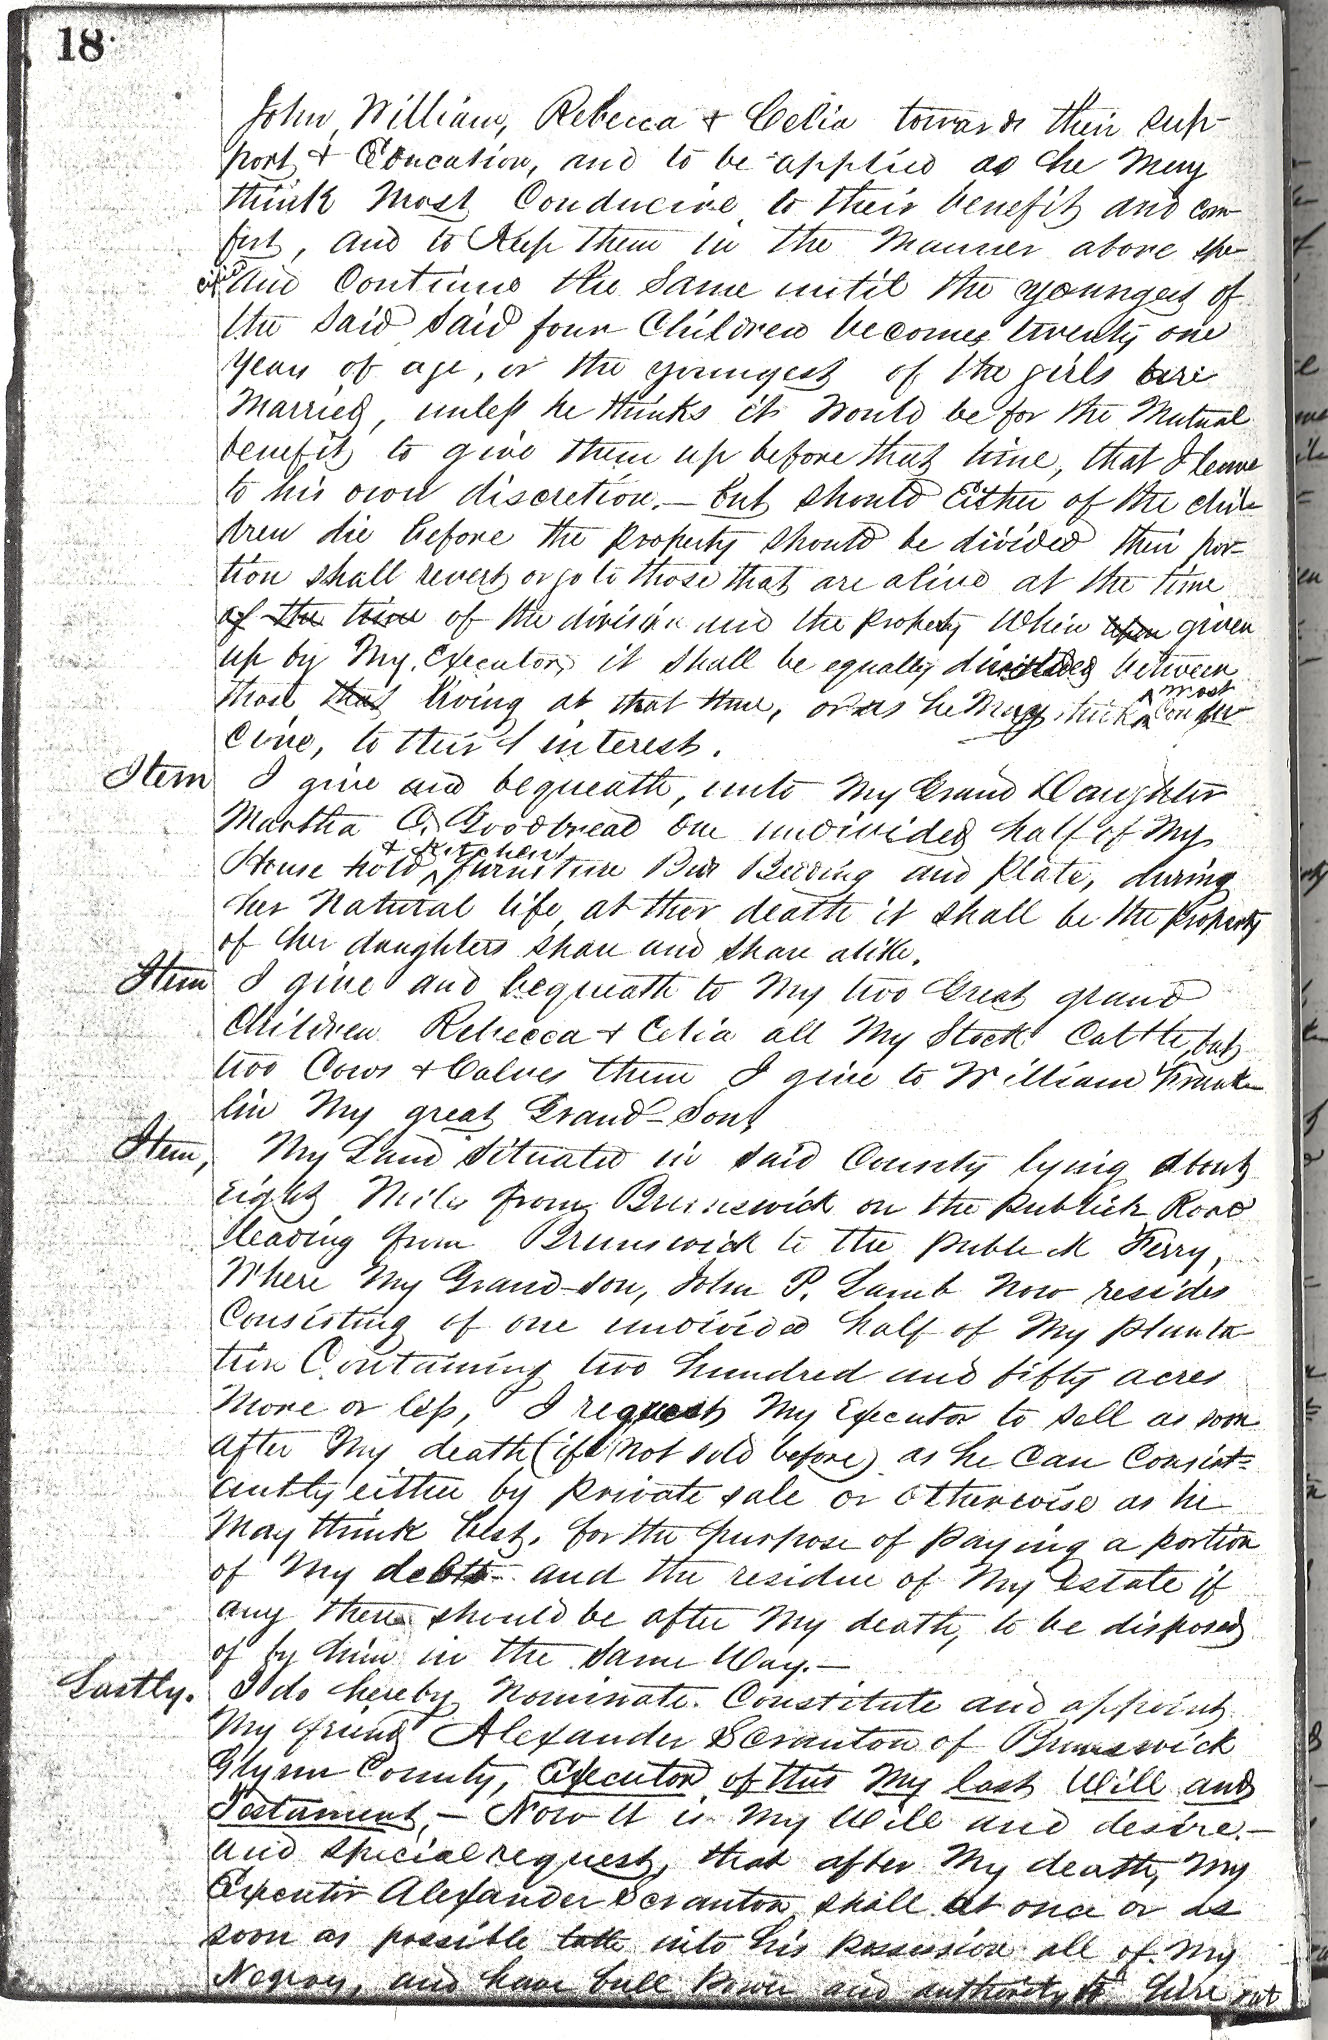 18
John, William, Rebecca & Celia towards their sup-
port & Education, and to be applied as he may
think most Conducive to their benefit and com-
fort, and to Keep them in the manner above spe-
cif'd and Continue the same until the youngest of
the said said four Children becomes twenty one
years of age, or the youngest of the girls are
Married, unless he thinks it would be for the Mutual
benefit to give them up before that time, that I leave
to his own discretion. — but should Either of the chil-
dren die before the property should be divided their por-
tion shall revert or go to those that are alive at the time
of the time of the division and the property When upon given
up by My Executor, it shall be equally divided between
those that living at that time, or as he May think most Condu-
cive, to their interest.
Item I give and bequeath, unto My Grand Daughter
Martha O. Goodbread one undivided half of My
House hold & Kitchen furniture Bedding and Plate, during
her Natural life, at her death it shall be the property
of her daughters share and share alike.
Item I give and bequeath to My two Great grand
Children Rebecca & Celia all My Stock Cattle but
two Cows & Calves them I give to William Frank-
lin My great Grand-Son,
Item, My Land Situated in said County lying about
Eight Miles from Brunswick on the Publick Road
leading from Brunswick to the publick Ferry,
Where My Grand-son, John P. Lamb Now resides
Consisting of one undivided half of My planta-
tion Containing two hundred and fifty acres
More or less, I request My Executor to sell as soon
after My death (if Not sold before) as he can Consist-
antly either by private sale or otherwise as he
May think best, for the purpose of paying a portion
of My debts and the residue of My Estate if
any there should be after My death, to be disposed
of by him in the same Way. —
Lastly. I do hereby Nominate. Constitute and appoint
My friend Alexander Scranton of Brunswick
Glynn County, Executor of this My last Will and
Testament, — Now it is My Will and desire. —
and special request, that after My death, My
Executor Alexander Scranton, shall at once or as
soon as possible take into his possession all of My
Negroes, and have full Power and authority to hire out